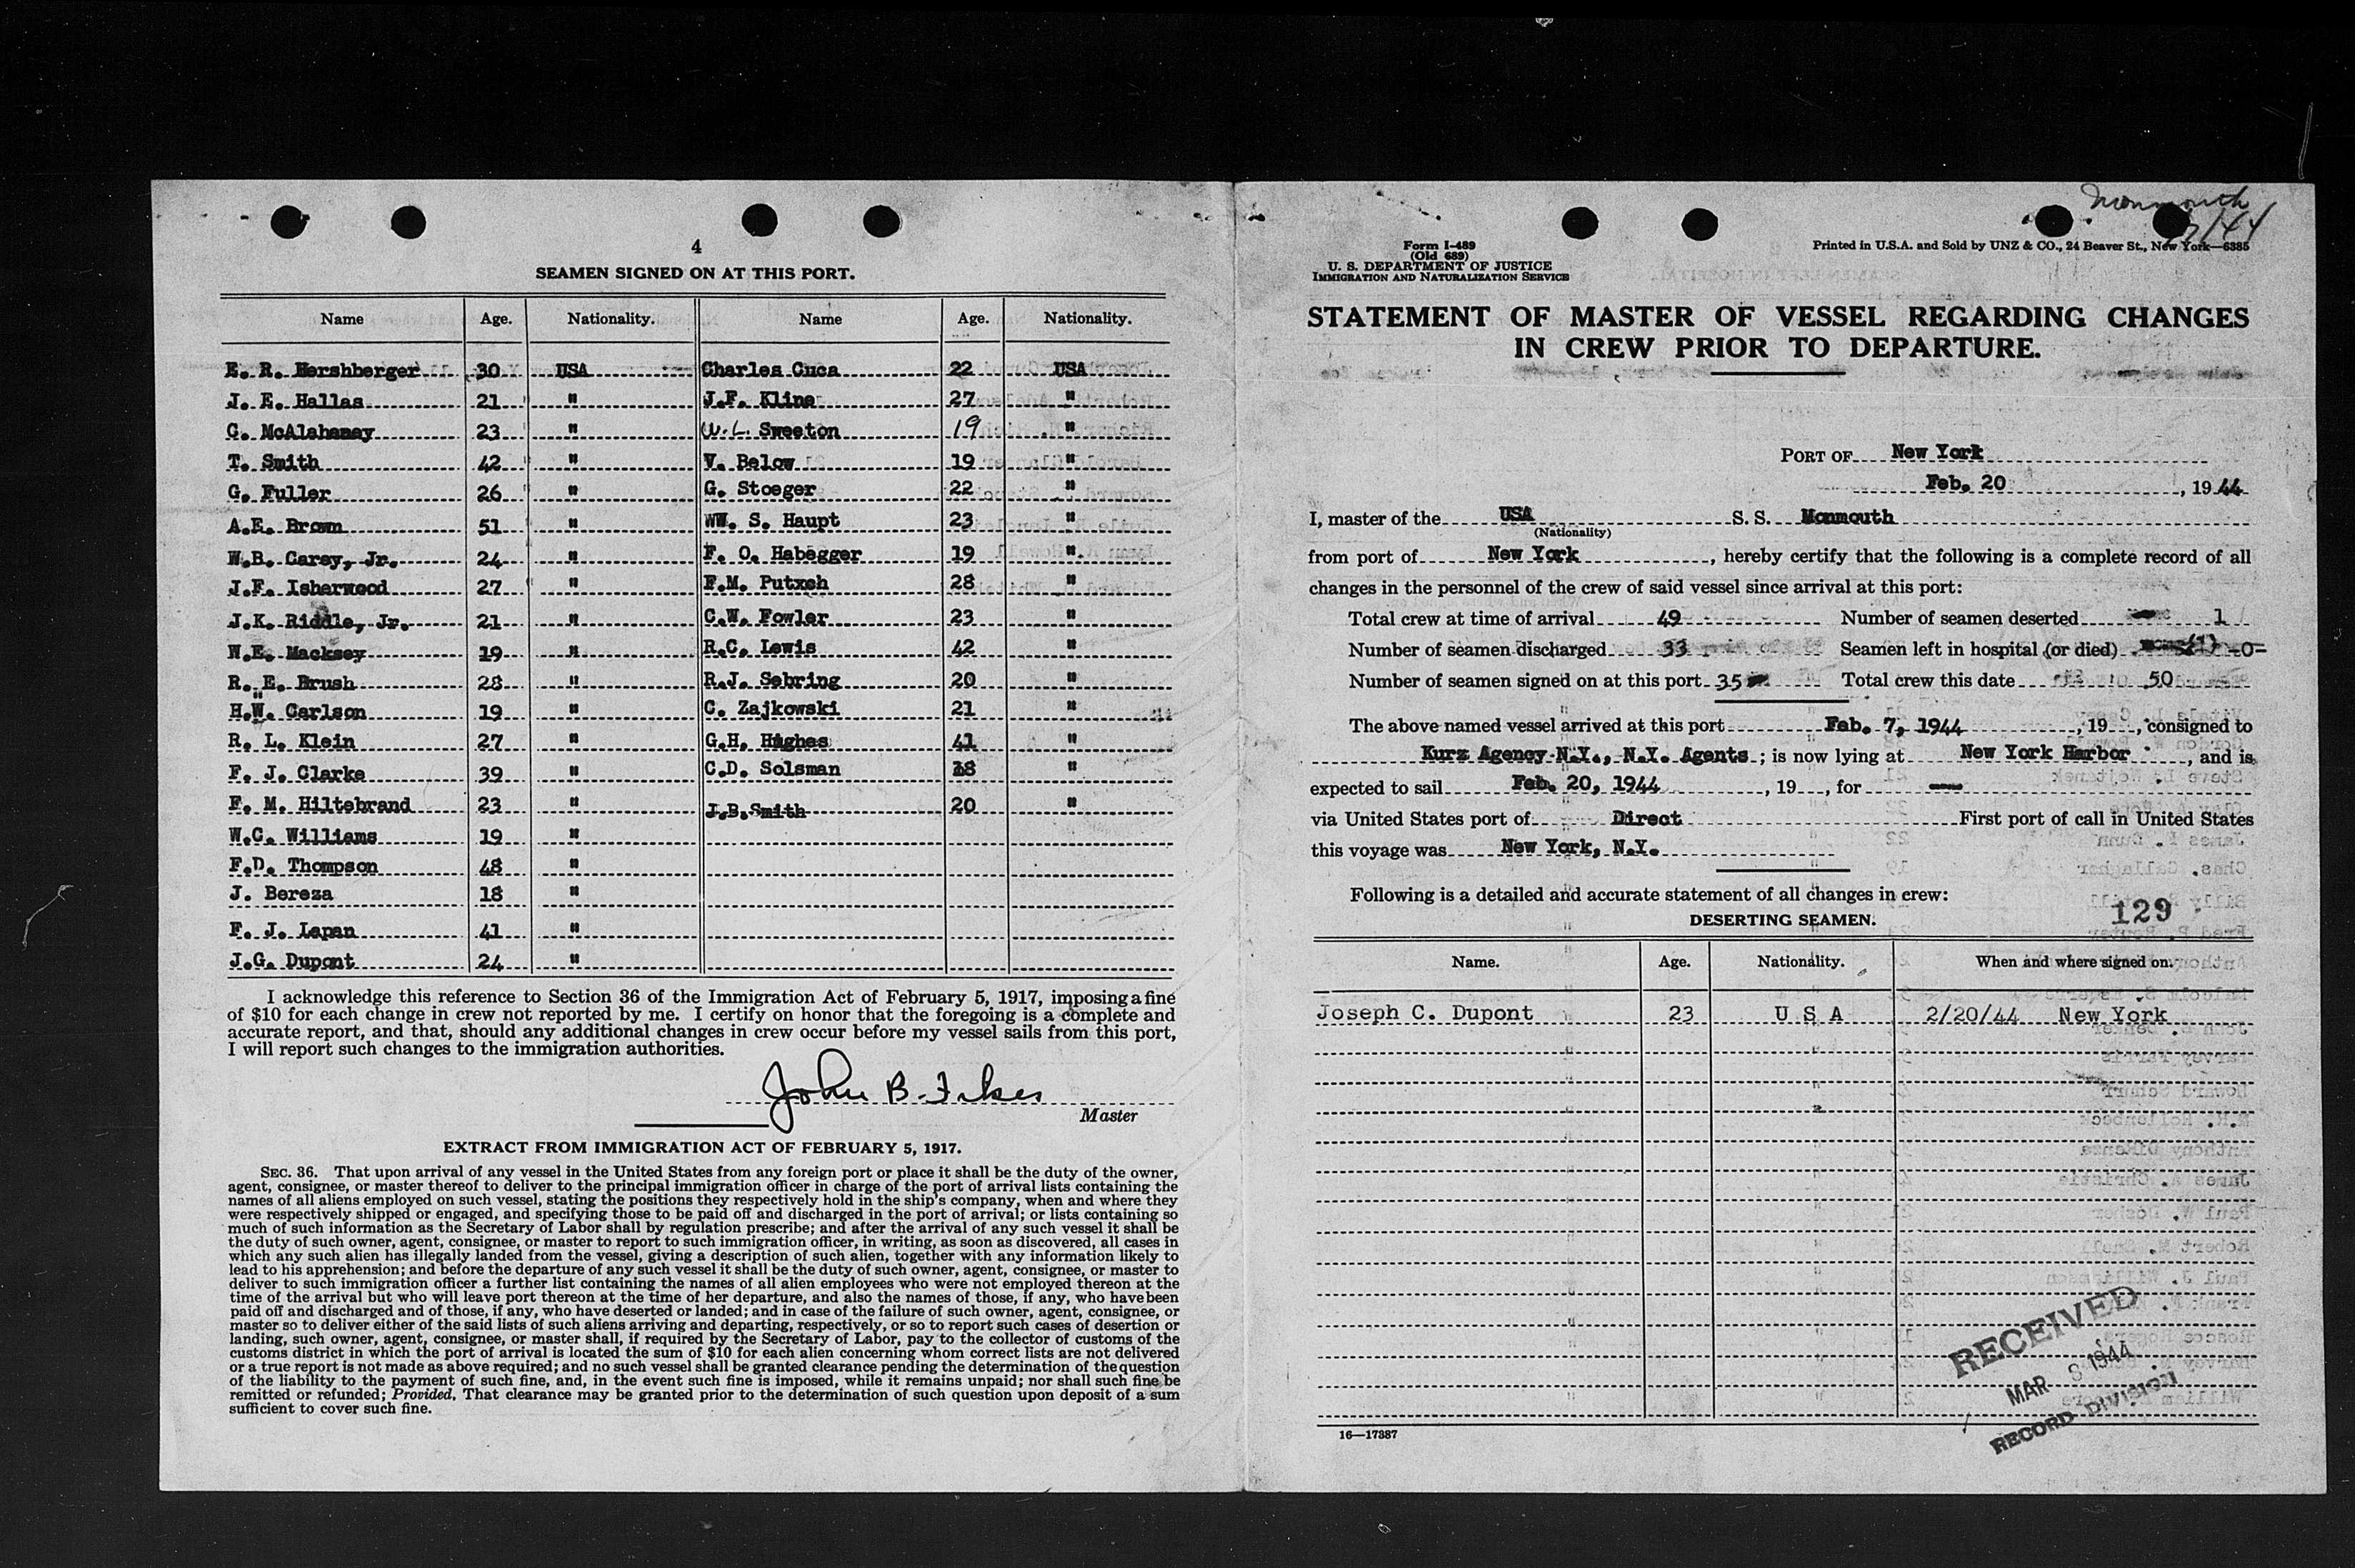 4
SEAMEN SIGNED ON AT THIS PORT.
Name Age. Nationality. Name Age. Nationality.
E. R. Hershberger 30 USA Charles Cuca 22 USA
J. E. Hallas 21 " J.F. Kline 27 "
G. McAlahaney 23 " W.L. Sweeton 19 "
T. Smith 42 " V. Below 19 "
G. Fuller 26 " G. Stoeger 22 "
A.E. Brown 51 " WM. S. Haupt 23 "
W.B. Carey, Jr. 24 " F. O. Habegger 19 "
J.F. Isherwood 27 " F.M. Putxeh 28 "
J.K. Riddle, Jr. 21 " C.W. Fowler 23 "
W.E. Macksey 19 " R.C. Lewis 42 "
R. E. Brush 28 " R.J. Sebring 20 "
H.W. Carlson 19 " C. Zajkowski 21 "
R. L. Klein 27 " G.H. Hughes 41 "
F. J. Clarke 39 " C.D. Solsman 18 "
F. M. Hiltebrand 23 " J.B.Smith 20 "
W.C. Williams 19 "
F.D. Thompson 48 "
J. Bereza 18 "
F. J. Lapan 41 "
J.G. Dupont 24 "
I acknowledge this reference to Section 36 of the Immigration Act of February 5, 1917, imposing a fine
of $10 for each change in crew not reported by me. I certify on honor that the foregoing is a complete and
accurate report, and that, should any additional changes in crew occur before my vessel sails from this port,
I will report such changes to the immigration authorities.
John B. Fikes
Master
EXTRACT FROM IMMIGRATION ACT OF FEBRUARY 5, 1917.
SEC. 36. That upon arrival of any vessel in the United States from any foreign port or place it shall be the duty of the owner,
agent, consignee, or master thereof to deliver to the principal immigration officer in charge of the port of arrival lists containing the
names of all aliens employed on such vessel, stating the positions they respectively hold in the ship's company, when and where they
were respectively shipped or engaged, and specifying those to be paid off and discharged in the port of arrival; or lists containing so
much of such information as the Secretary of Labor shall by regulation prescribe; and after the arrival of any such vessel it shall be
the duty of such owner, agent, consignee, or master to report to such immigration officer, in writing, as soon as discovered, all cases in
which any such alien has illegally landed from the vessel, giving a description of such alien, together with any information likely to
lead to his apprehension; and before the departure of any such vessel it shall be the duty of such owner, agent, consignee, or master to
deliver to such immigration officer a further list containing the names of all alien employees who were not employed thereon at the
time of the arrival but who will leave port thereon at the time of her departure, and also the names of those, if any, who have been
paid off and discharged and of those, if any, who have deserted or landed; and in case of the failure of such owner, agent, consignee, or
master so to deliver either of the said lists of such aliens arriving and departing, respectively, or so to report such cases of desertion or
landing, such owner, agent, consignee, or master shall, if required by the Secretary of Labor, pay to the collector of customs of the
customs district in which the port of arrival is located the sum of $10 for each alien concerning whom correct lists are not delivered
or a true report is not made as above required; and no such vessel shall be granted clearance pending the determination of the question
of the liability to the payment of such fine, and, in the event such fine is imposed, while it remains unpaid; nor shall such fine be
remitted or refunded; Provided, That clearance may be granted prior to the determination of such question upon deposit of a sum
sufficient to cover such fine.
Monmouth
Form I-489
(Old 689)
U. S. DEPARTMENT OF JUSTICE
IMMIGRATION AND NATURALIZATION SERVICE
Printed in U.S.A. and Sold by UNZ & CO., 24 Beaver St., New York—6385
STATEMENT OF MASTER OF VESSEL REGARDING CHANGES
IN CREW PRIOR TO DEPARTURE.
PORT OF New York
Feb. 20, 1944
I, master of the USA S. S. Monmouth
(Nationality)
from port of New York, hereby certify that the following is a complete record of all
changes in the personnel of the crew of said vessel since arrival at this port:
Total crew at time of arrival 49 Number of seamen deserted 1
Number of seamen discharged 33 Seamen left in hospital (or died) -0-
Number of seamen signed on at this port 35 Total crew this date 50
The above named vessel arrived at this port Feb. 7, 1944, 19 , consigned to
Kurz Agency N.Y., N.Y. Agents; is now lying at New York Harbor, and is
expected to sail Feb. 20, 1944, 19 , for —
via United States port of Direct First port of call in United States
this voyage was New York, N.Y.
Following is a detailed and accurate statement of all changes in crew:
129
DESERTING SEAMEN.
Name. Age. Nationality. When and where signed on.
Joseph C. Dupont 23 U S A 2/20/44 New York
RECEIVED
MAR 8 1944
RECORD DIVISION
16—17387